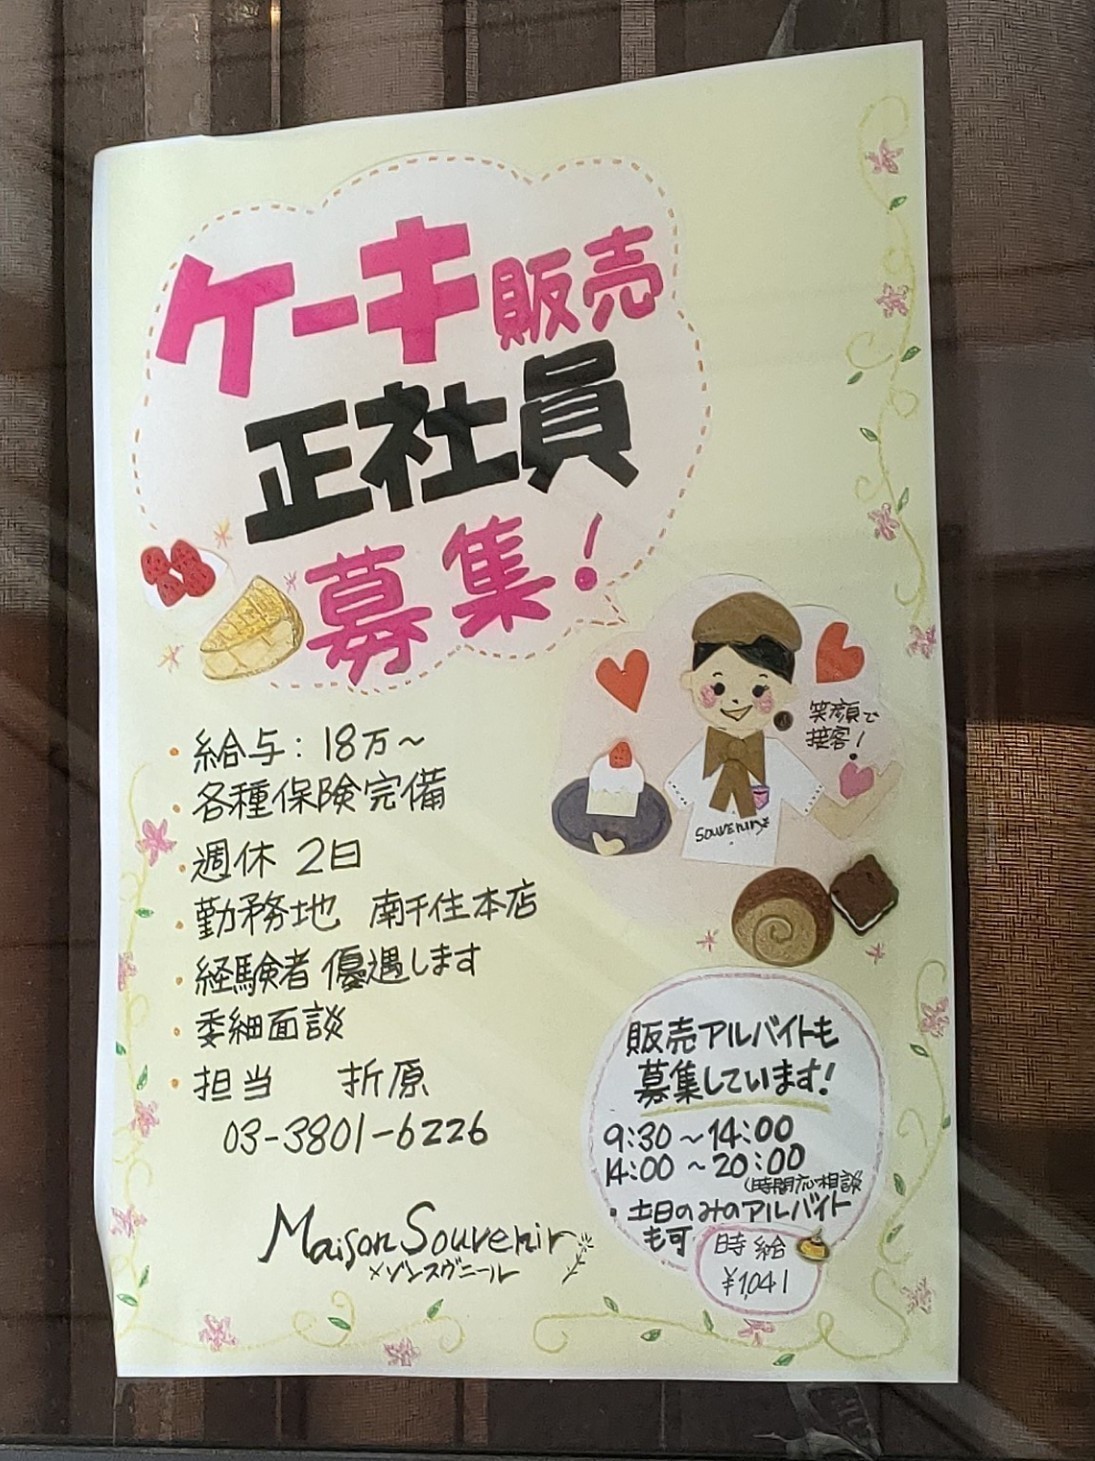 ケーキ販売
正社員
募集!
・給与: 18万~
・各種保険完備
・週休 2日
・勤務地 南千住本店
・経験者 優遇します
・委細面談
・担当 折原
03-3801-6226
Maison Souvenir
メゾンスヴニール
笑顔で
接客!
Souvenir
販売アルバイトも
募集しています!
9:30~14:00
14:00~20:00
(時間応相談
・土日のみのアルバイト
も可
時給
¥1,041